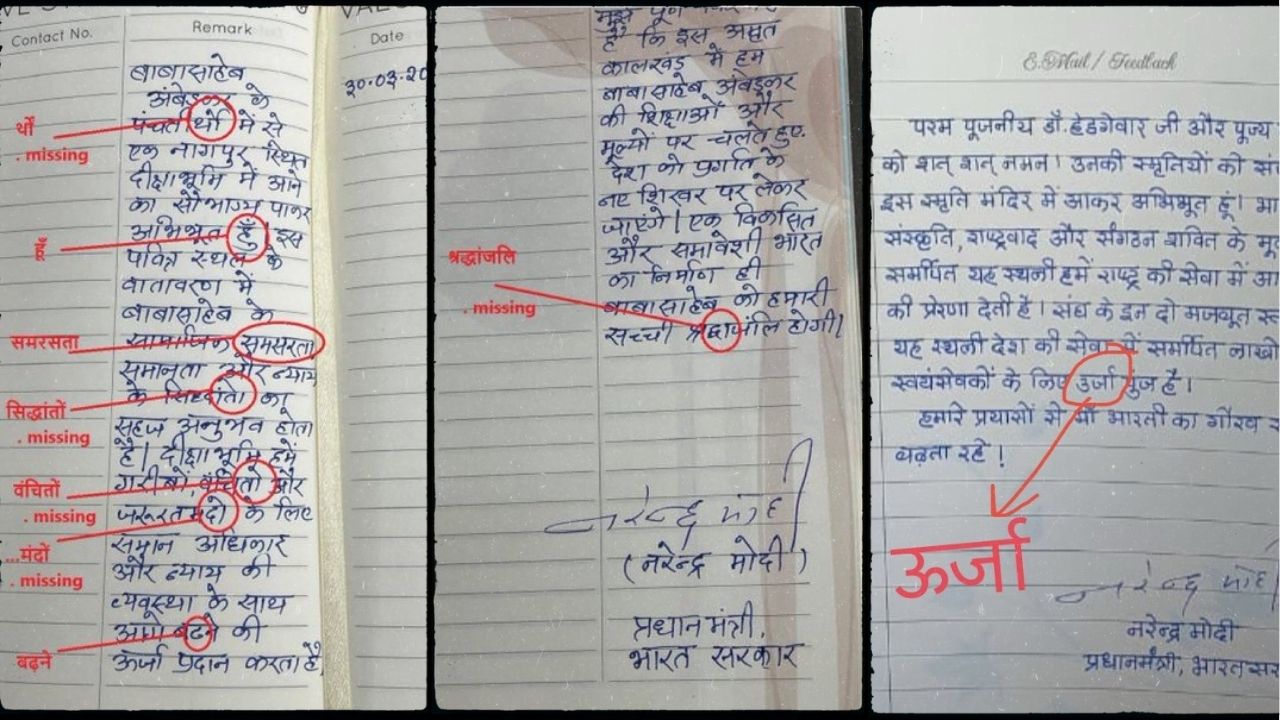 Contact No.
Remark
Date
30-03-20
बाबासाहेब
अंबेडकर के
पंचतीर्थो में से
एक नागपुर स्थित
दीक्षाभूमि में आने
का सौभाग्य पाकर
अभिभूत हुँ। इस
पवित्र स्थल के
वातावरण में
बाबासाहेब के
सामाजिक समसरता
समानता और न्याय
के सिद्धांतो का
सहज अनुभव होता
है। दीक्षाभूमि हमें
गरीबों, वंचितो और
जरूरतमंदो के लिए
समान अधिकार
और न्याय की
व्यवस्था के साथ
आगे बढने की
ऊर्जा प्रदान करता है
र्थों
. missing
हूँ
समरसता
सिद्धांतों
. missing
वंचितों
. missing
...मंदों
. missing
बढ़ने
मुझे पूर्ण
है कि इस अमृत
कालखंड में हम
बाबासाहेब अंबेडकर
की शिक्षाओं और
मूल्यों पर चलते हुए
देश को प्रगति के
नए शिखर पर लेकर
जाएंगे। एक विकसित
और समावेशी भारत
का निर्माण ही
बाबासाहेब को हमारी
सच्ची श्रद्धाजंलि होगी।
श्रद्धांजलि
. missing
नरेन्द्र मोदी
(नरेन्द्र मोदी)
प्रधानमंत्री,
भारत सरकार
E.Mail / Feedback
परम पूजनीय डॉ. हेडगेवार जी और पूज्य
को शत् शत् नमन। उनकी स्मृतियों को सं
इस स्मृति मंदिर में आकर अभिभूत हूं। भा
संस्कृति, राष्ट्रवाद और संगठन शक्ति के मू
समर्पित यह स्थली हमें राष्ट्र की सेवा में आ
की प्रेरणा देती है। संघ के इन दो मजबूत स्
यह स्थली देश की सेवा में समर्पित लाखो
स्वयंसेवकों के लिए उर्जा पुंज है।
हमारे प्रयासों से माँ भारती का गौरव स
बढ़ता रहे!
ऊर्जा
नरेन्द्र मोदी
नरेन्द्र मोदी
प्रधानमंत्री, भारत सर